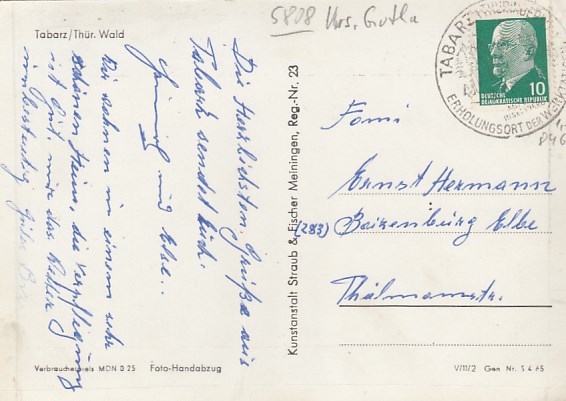 5808 Krs. Gotha
Tabarz/Thür. Wald
Die Herzlichsten Grüße aus
Tabarz sendet Euch.
und
Wir wohnen in einem sehr
schönen Heim, die Verpflegung
ist gut, nur das Wetter
unbeständig
Verbraucherpreis MDN 0 25 Foto-Handabzug
Kunstanstalt Straub & Fischer Meiningen, Reg.-Nr. 23
TABARZ
ERHOLUNGSORT DER WERKTÄTIGEN
10
DEUTSCHE
DEMOKRATISCHE REPUBLIK
Fami
Ernst Hermann
(283) Boizenburg Elbe
Thälmannstr.
V/11/2 Gen Nr. S 4 65